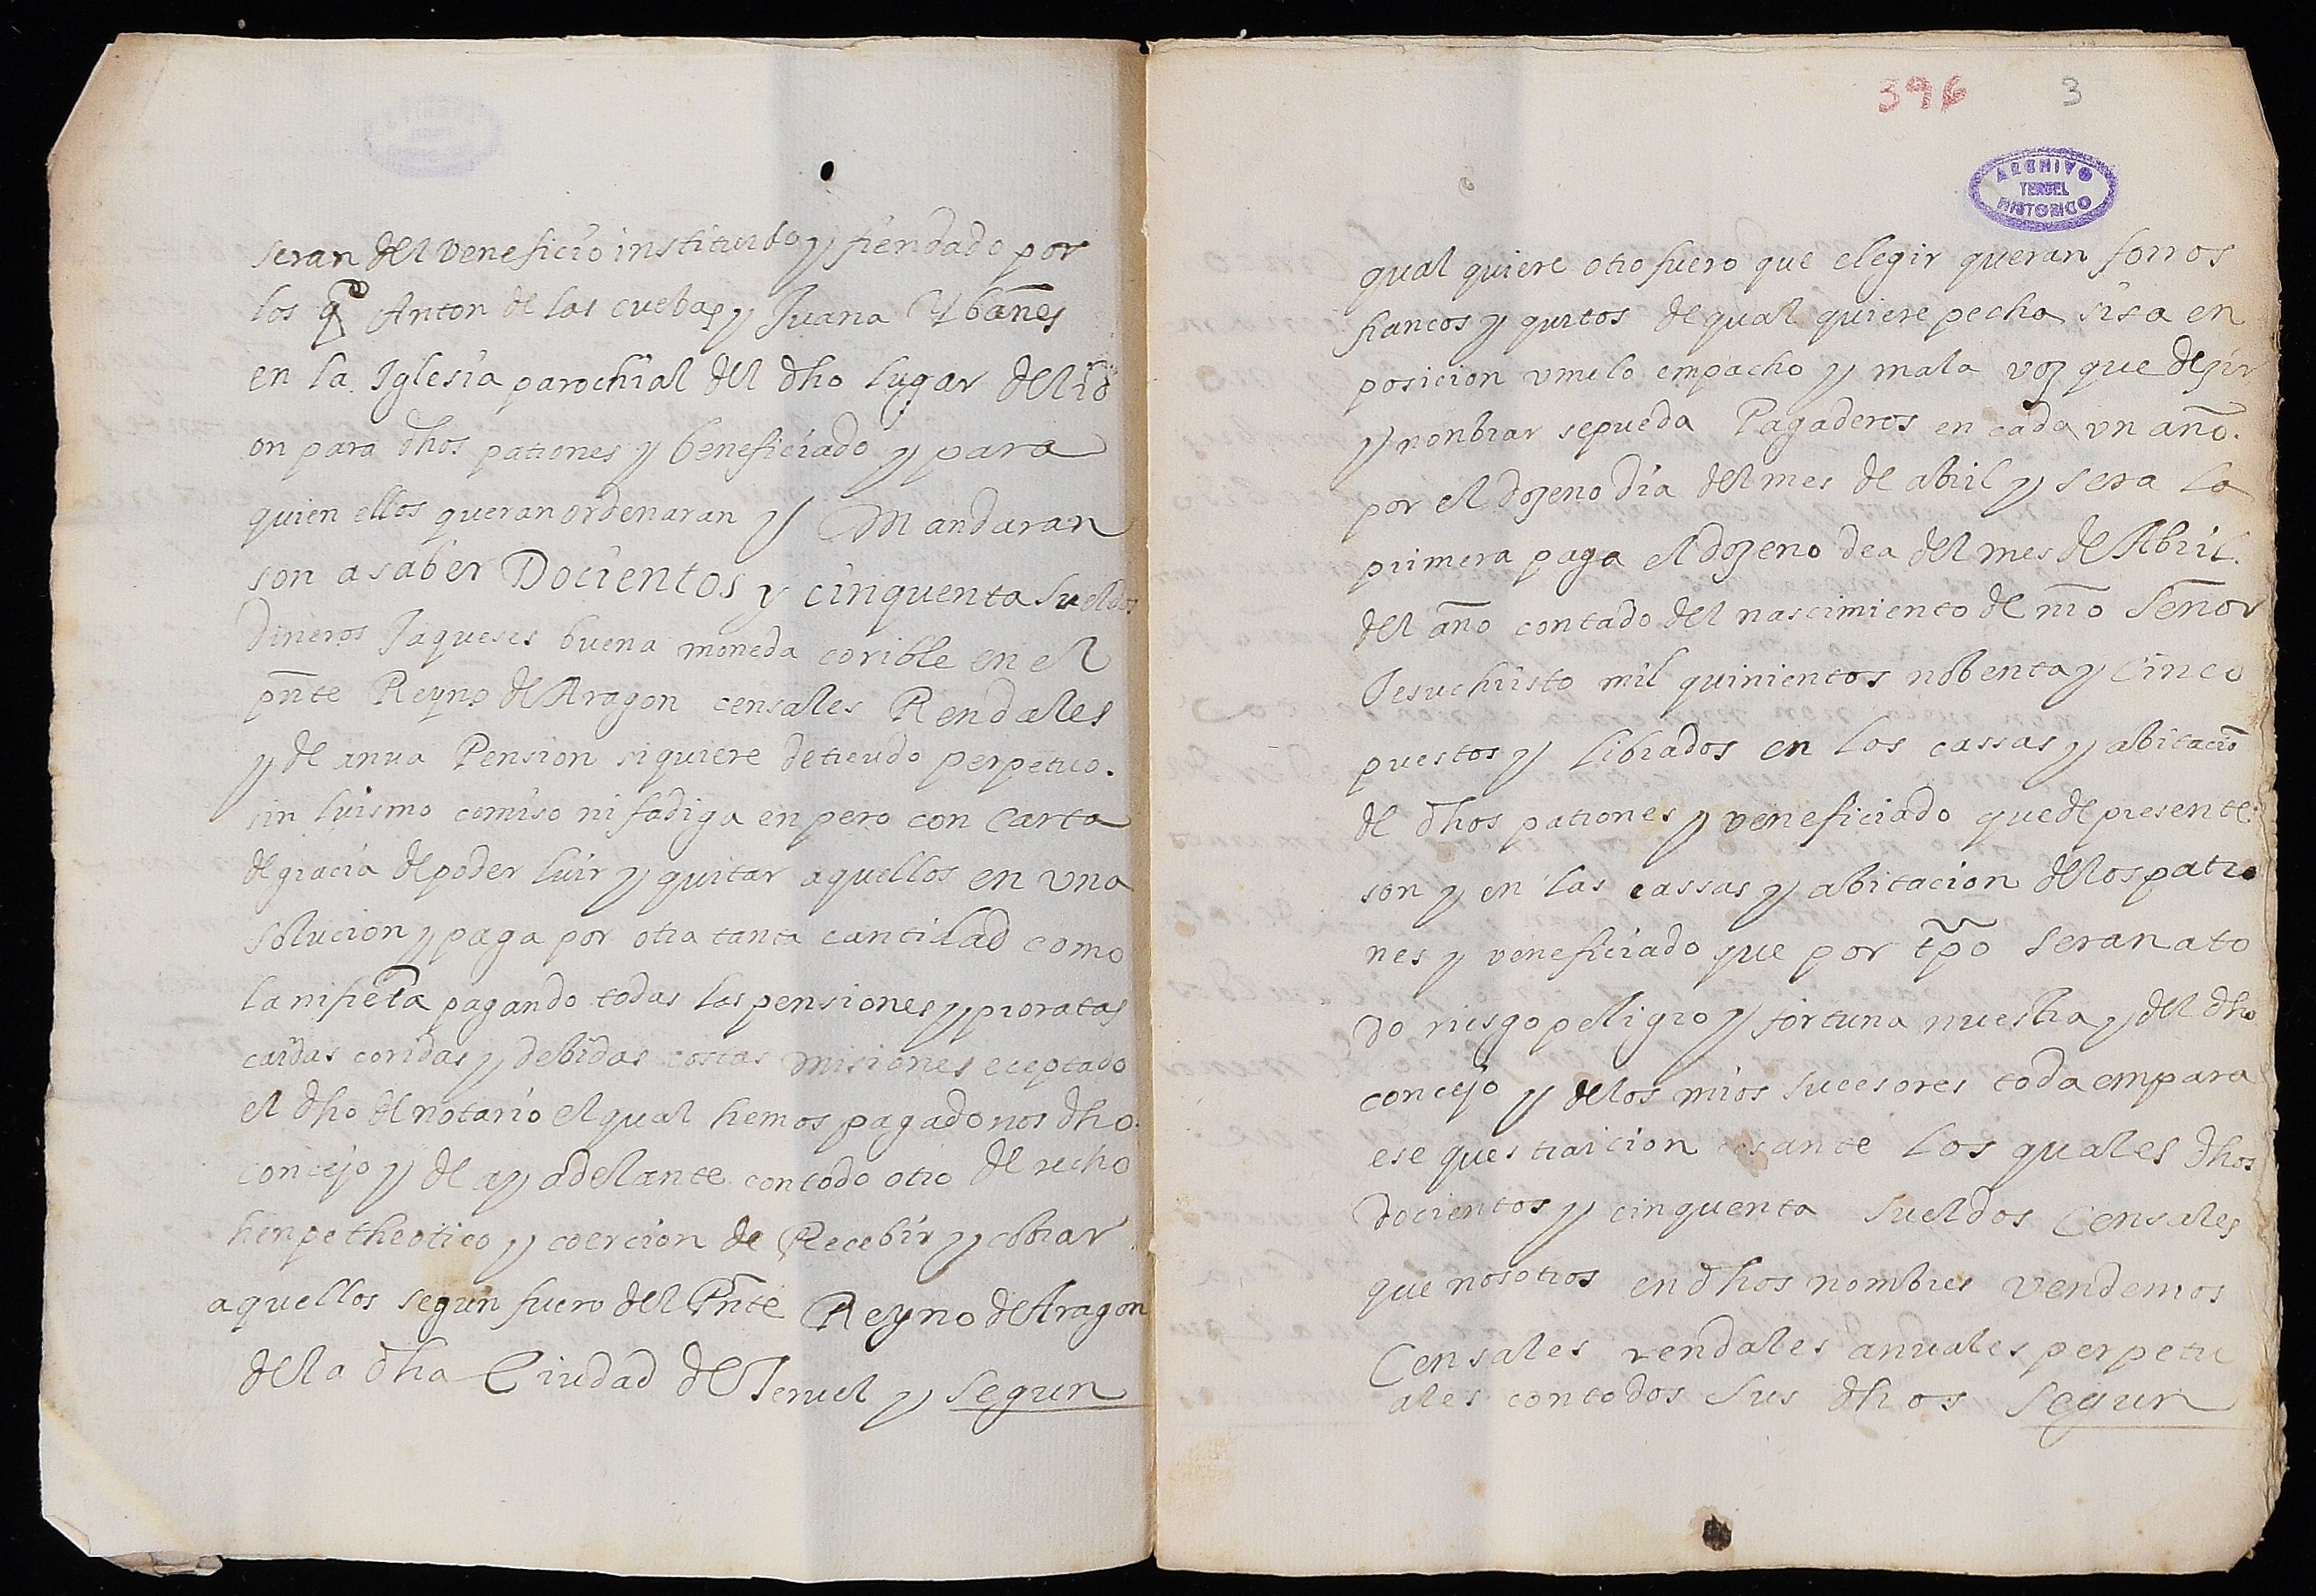 seran del veneficio instituido y fiendado por
los qº Anton de las cuebas y Juana Ybañes
en la Iglesia parochial del dho lugar del rº
on para dhos patrones y beneficiado y para
quien ellos queran ordenaran y Mandaran
son a saber Docientos y cinquenta sueldos
Dineros Jaqueses buena moneda corible en el
pnte Reyno de Aragon censales Rendales
y de anua Pension siquiere detreudo perpetuo.
sin luismo comiso ni fadiga enpero con carta
de gracia de poder luir y quitar aquellos en una
solucion y paga por otra tanta cantidad como
la nifieta pagando todas las pensiones y proratas
caidas coridas y debidas costas misiones eceptado
el dho del notario el qual hemos pagado nos dho.
concejo y de ay adelante con todo otro derecho
hinpetheotico y coercion de Recebir y cobrar
aquellos segun fuero del Pnte Reyno de Aragon
de la dha Ciudad de Teruel y segun
396 3
ARCHIVO
TERUEL
HISTORICO
qual quiere otro fuero que elegir queran forros
francos y quitos de qual quiere pecha sisa en
posicion vinclo empacho y mala voz que dezir
y nonbrar se pueda Pagaderos en cada un año.
por el dozeno dia del mes de abril y sera la
primera paga el dozeno dea del mes de Abril.
del año contado del nascimiento de nro Señor
Jesuchristo mil quinientos nobenta y Cinco
puestos y librados en los cassas y abitacio
de dhos patrones y veneficiado que de presente
son y en las cassas y abitacion de los patro
nes y veneficiado que por tpo seran a to
do riesgo peligro y fortuna nuestra y del dho
concejo y de los mios sucesores toda empara
e se questraicion cesante los quales dhos
Docientos y cinquenta sueldos Censales
que nosotros en dhos nombres vendemos
Censales rendales anuales perpetu
ales con todos sus dhos segun